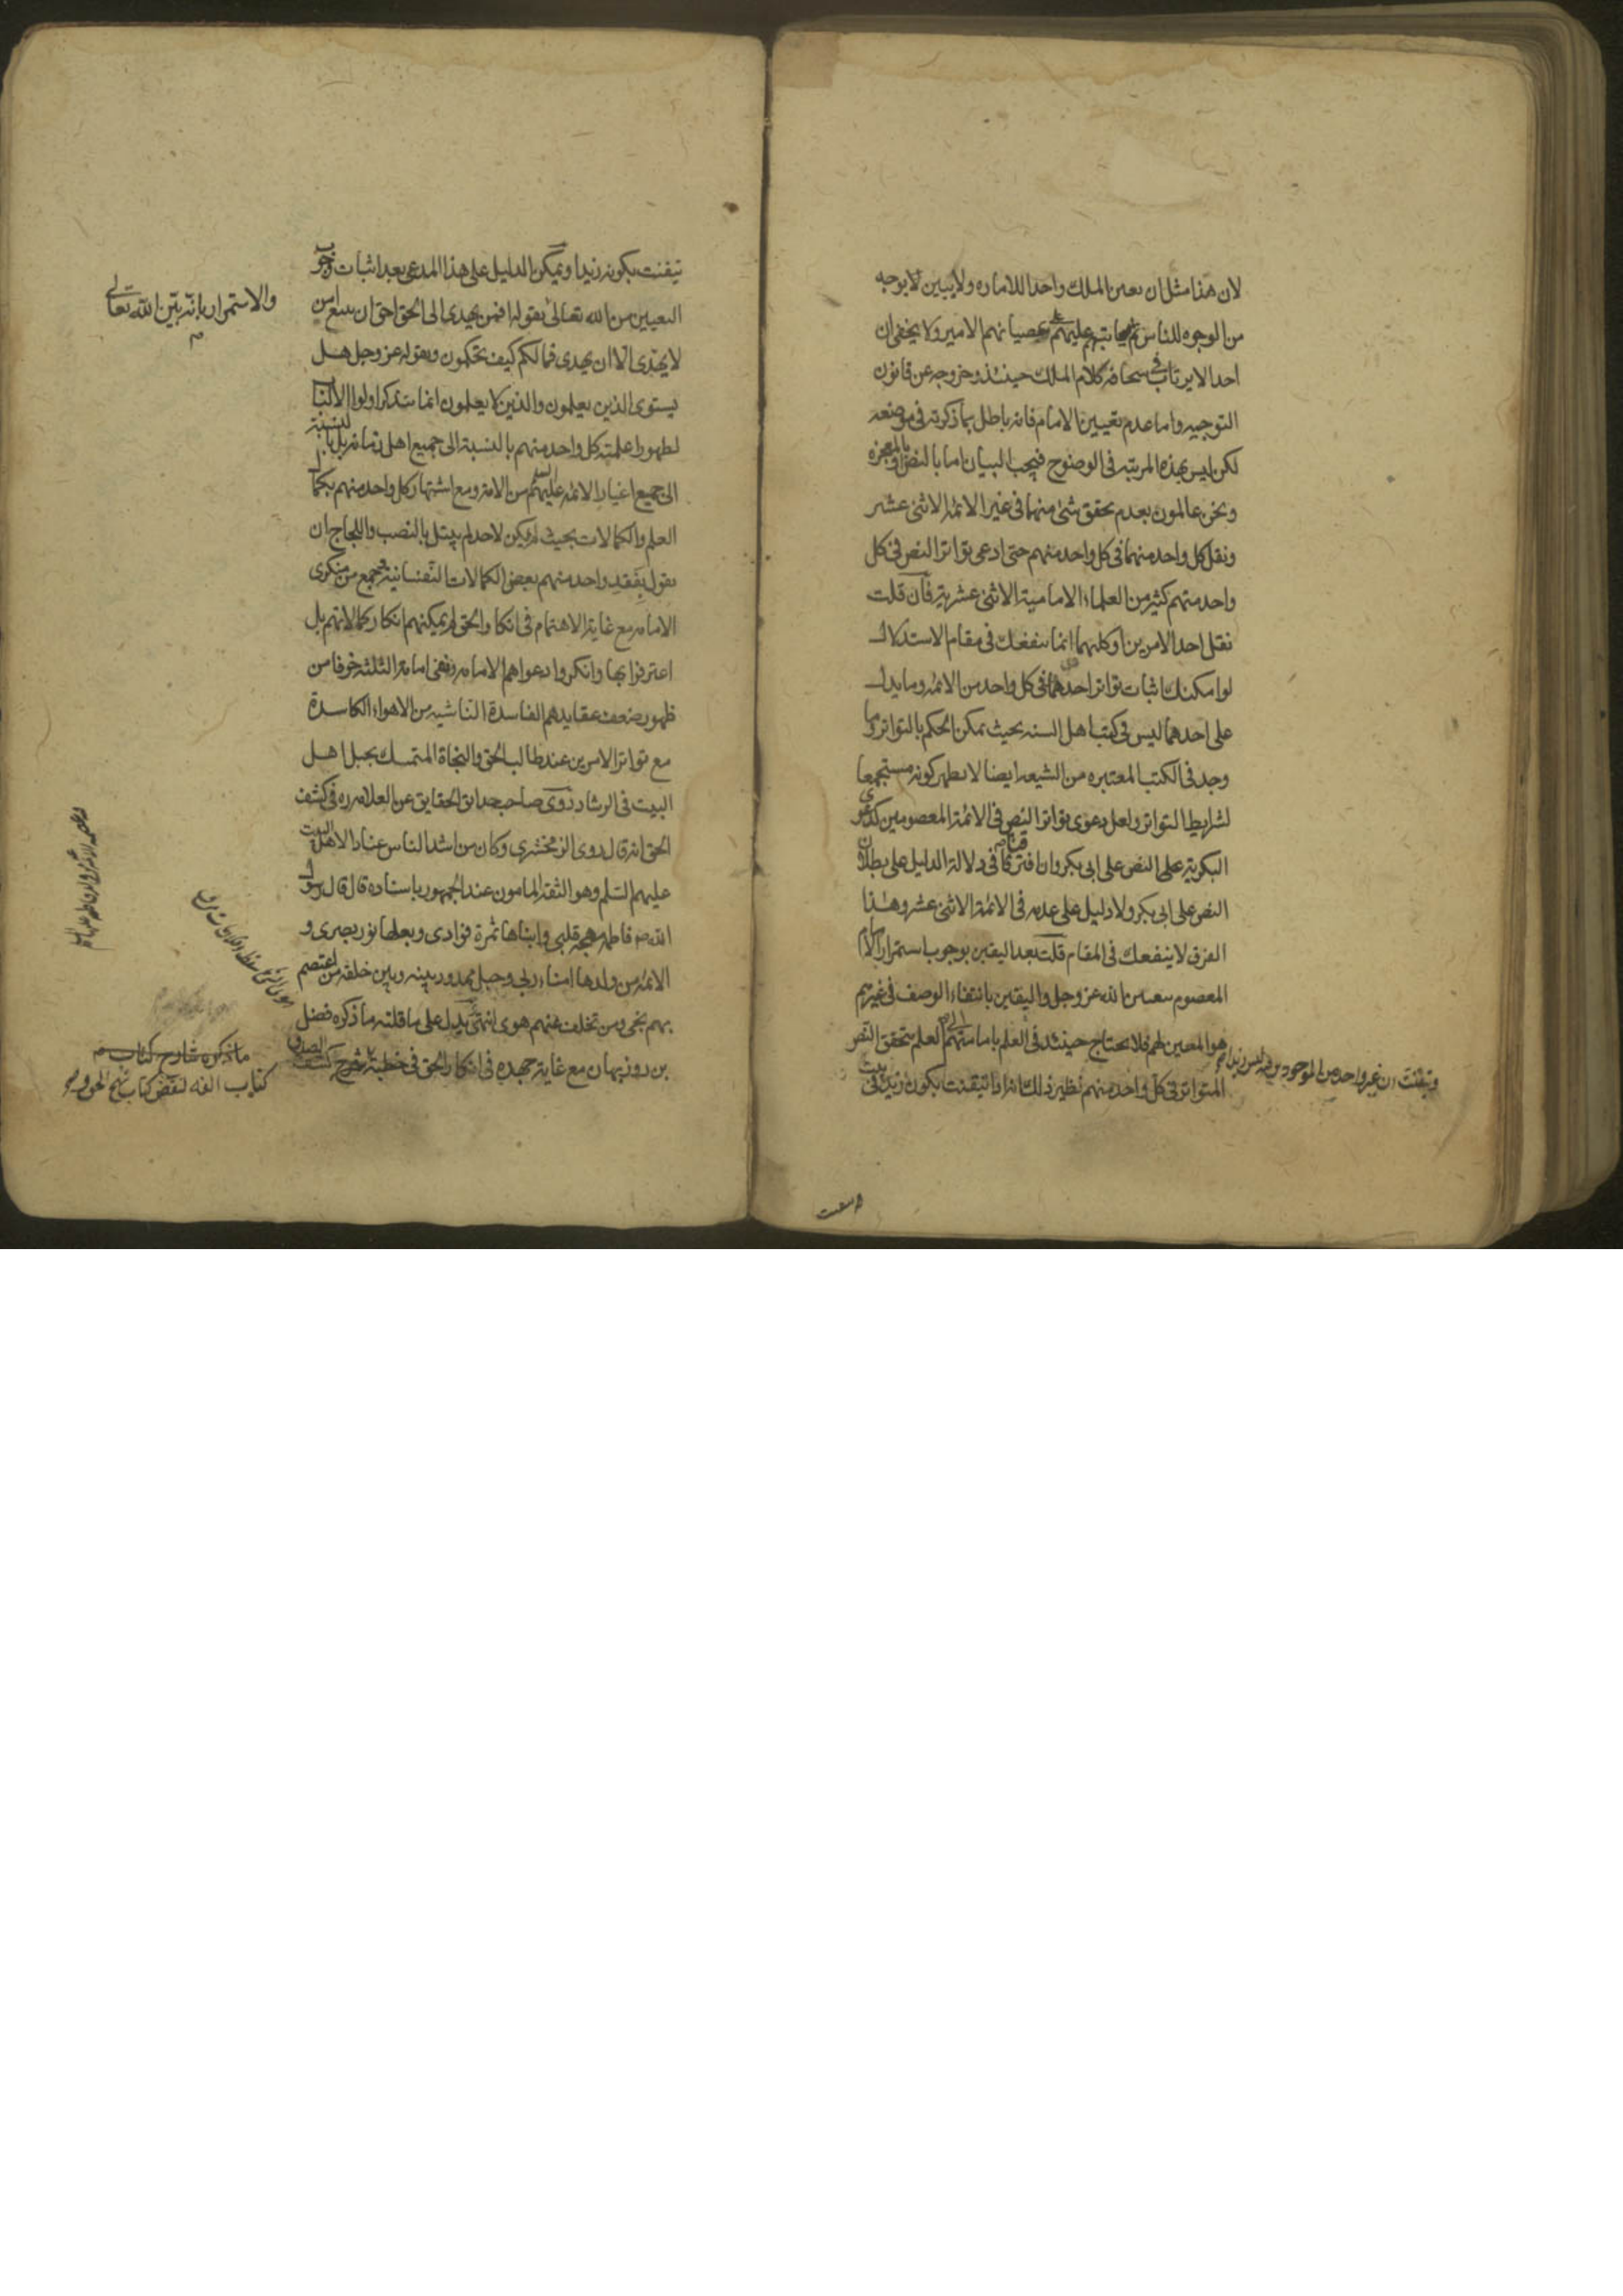 لان هذا مثل ان يعين الملك واحدا للاماره ولا يبين لا بوجه
من الوجوه للناس ثم يعاتبهم عليهم بعصيانهم الامير ولا يخفى ان
احدا لا يرتاب في سخافة كلام الملك حينئذ وخروجه عن قانون
التوجيه واما عدم تعيين الامام فانه باطل بما ذكرته في موضعه
لكن ليس بهذه المرتبه في الوضوح فيجب البيان اما بالنص او بالمعجزه
ونحن عالمون بعدم تحقق شئ منها في غير الائمه الاثنى عشر
ونقل كل واحد منهما في كل واحد منهم حتى ادعى تواتر النص في كل
واحد منهم كثير من العلماء الامامية الاثنى عشرية فان قلت
نقل احد الامرين او كليهما انما ينفعك في مقام الاستدلال
لو امكنك اثبات تواتر احدهما في كل واحد من الائمه وما يدل
على احدهما ليس في كتب اهل السنه بحيث يمكن الحكم بالتواتر وما
وجد في الكتب المعتبره من الشيعه ايضا لا يظهر كونه مستجمعا
لشرايط التواتر ولعل دعوى تواتر النص في الائمة المعصومين كدعوى
البكرية على النص على ابى بكر وان افترقتا في دلالة الدليل على بطلان
النص على ابى بكر ولا دليل على عدمه في الائمة الاثنى عشر وهذا
الفرق لا ينفعك في المقام قلت بعد اليقين بوجوب استمرار الامام
المعصوم بتعيين الله عز وجل واليقين بانتفاء الوصف في غيرهم
هو المعين لهم فلا يحتاج حينئذ في العلم بامامتهم العلم بتحقق النص
المتواتر في كل واحد منهم نظير ذلك انه اذا تيقنت بكون زيد في بيت
وتيقنت ان غير واحد من الموجودين فيه ليس زيدا
تيقنت بكونه زيدا ويمكن الدليل على هذا المدعى بعد اثبات وجوب
والاستمرار بانه بين الله تعالى
التعيين من الله تعالى بقوله افمن يهدي الى الحق احق ان يتبع امن
لا يهدى الا ان يهدى فما لكم كيف تحكمون وبقوله عز وجل هل
يستوى الذين يعلمون والذين لا يعلمون انما يتذكر اولوا الالباب
لظهور اعلمية كل واحد منهم بالنسبة الى جميع اهل زمانه بل بالنسبة
الى جميع اغيار الائمه عليهم السلم من الامة ومع اشتهار كل واحد منهم بكمال
العلم والكمالات بحيث لم يكن لاحد لم يبتل بالنصب واللجاج ان
يقول بفقد واحد منهم بعض الكمالات النفسانية فجمع من منكرى
الامامه مع غاية الاهتمام في انكار الحق لم يمكنهم انكار كمالاتهم بل
اعترفوا بها وانكروا دعواهم الامامه ونفى امامة الثلثة خوفا من
ظهور ضعف عقايدهم الفاسدة الناشيه من الاهواء الكاسدة
مع تواتر الامرين عند طالب الحق والنجاة المتمسك بحبل اهل
البيت في الرشاد روى صاحب حدايق الحقايق عن العلامه ره في كشف
الحق انه قال روى الزمخشرى وكان من اشد الناس عنادا لاهل البيت
عليهم السلم وهو الثقة المامون عند الجمهور باسناده قال قال رسول
الله ص فاطمه مهجة قلبى وابناها ثمرة فؤادى وبعلها نور بصرى و
الائمه من ولدها امناء ربى وحبل ممدود بينه وبين خلقه من اعتصم
بهم نجى ومن تخلف عنهم هوى انتهى يدل على ما قلته ما ذكره فضل
بن روزبهان مع غاية جهده في انكار الحق في خطبة شرح كشف
ما ذكره شارح كتاب
كتاب الفه لنقض كتاب نهج الحق